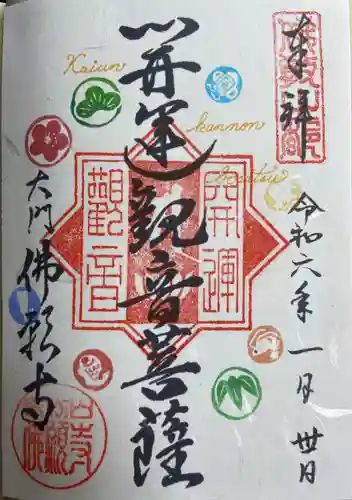 奉拝
令和六年一月廿日
開運観音菩薩
Kaiun
kannon
開運
觀音
大門
佛願寺